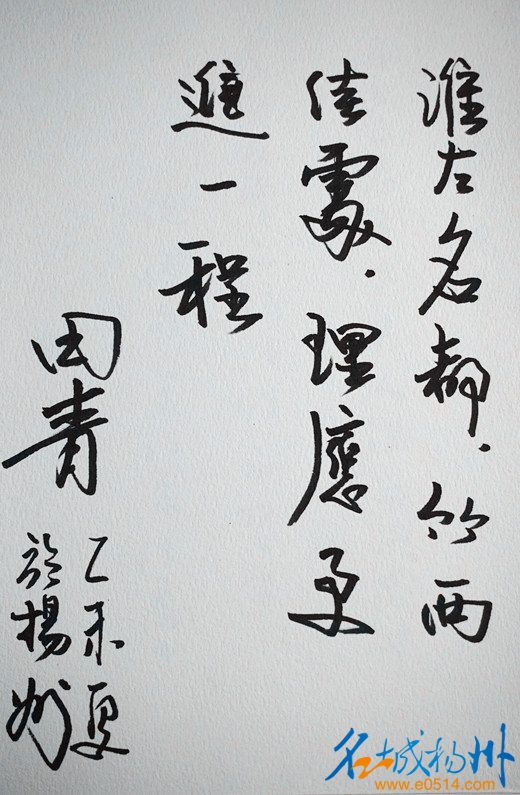 淮左名都．竹西
佳處．理應更
進一程
田青
乙未夏
於揚州
名城扬州
www.e0514.com